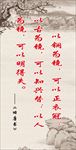 以铜为镜,可以正衣冠,
以古为镜,可以知兴替,以人
为镜,可以明得失。
——旧唐书